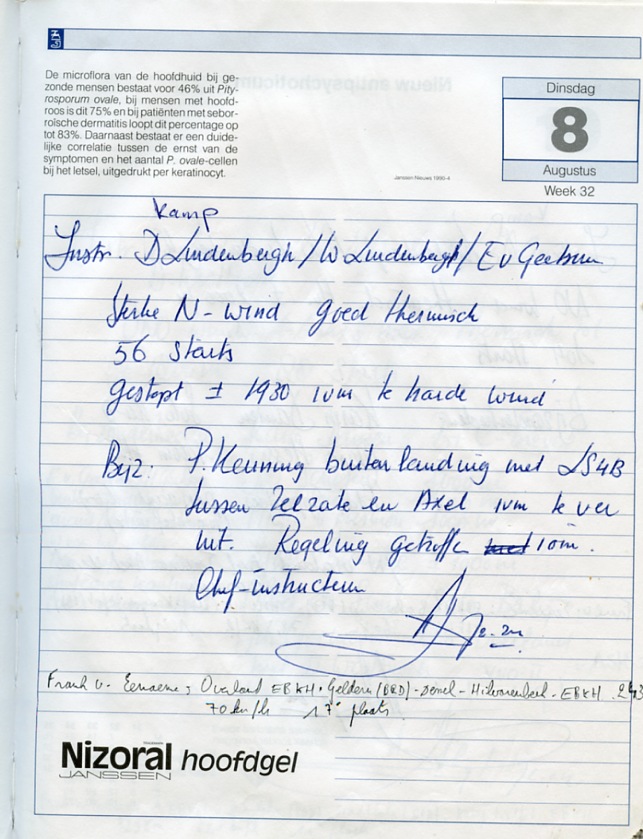 De microflora van de hoofdhuid bij ge-
zonde mensen bestaat voor 46% uit Pity-
rosporum ovale, bij mensen met hoofd-
roos is dit 75% en bij patiënten met sebor-
roïsche dermatitis loopt dit percentage op
tot 83%. Daarnaast bestaat er een duide-
lijke correlatie tussen de ernst van de
symptomen en het aantal P. ovale-cellen
bij het letsel, uitgedrukt per keratinocyt.
Janssen Nieuws 1990-4
Dinsdag
8
Augustus
Week 32
Kamp
Instr. D Lindenbergh / W Lindenbergh / E v
Sterke N-wind goed thermisch
56 starts
gestopt ± 1930 ivm te harde wind
Bijz: P. Keuning buitenlanding met LS4B
tussen Zelzate en Axel ivm te ver
uit. Regeling getroffen iom.
Chef-instructeur
Frank v. Overland EBKH - Geldern (BRD) - - Hilvarenbeek - EBKH
70 km/h 17e plaats
Nizoral hoofdgel
JANSSEN